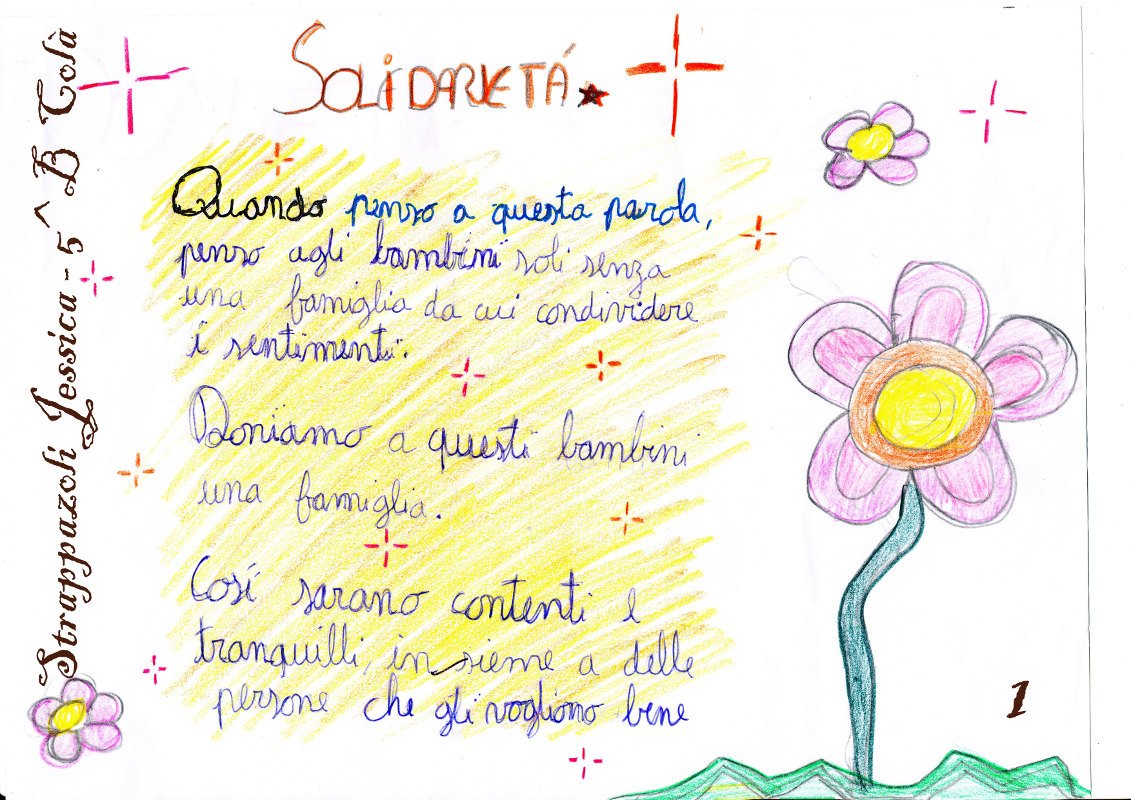 SOLIDARIETÁ
Quando penso a questa parola,
penso agli bambini soli senza
una famiglia da cui condividere
i sentimenti.
Doniamo a questi bambini
una famiglia.
Cosí sarano contenti e
tranquilli, in sieme a delle
persone che gli vogliono bene
Strappazoli Jessica - 5^ B Colà
1